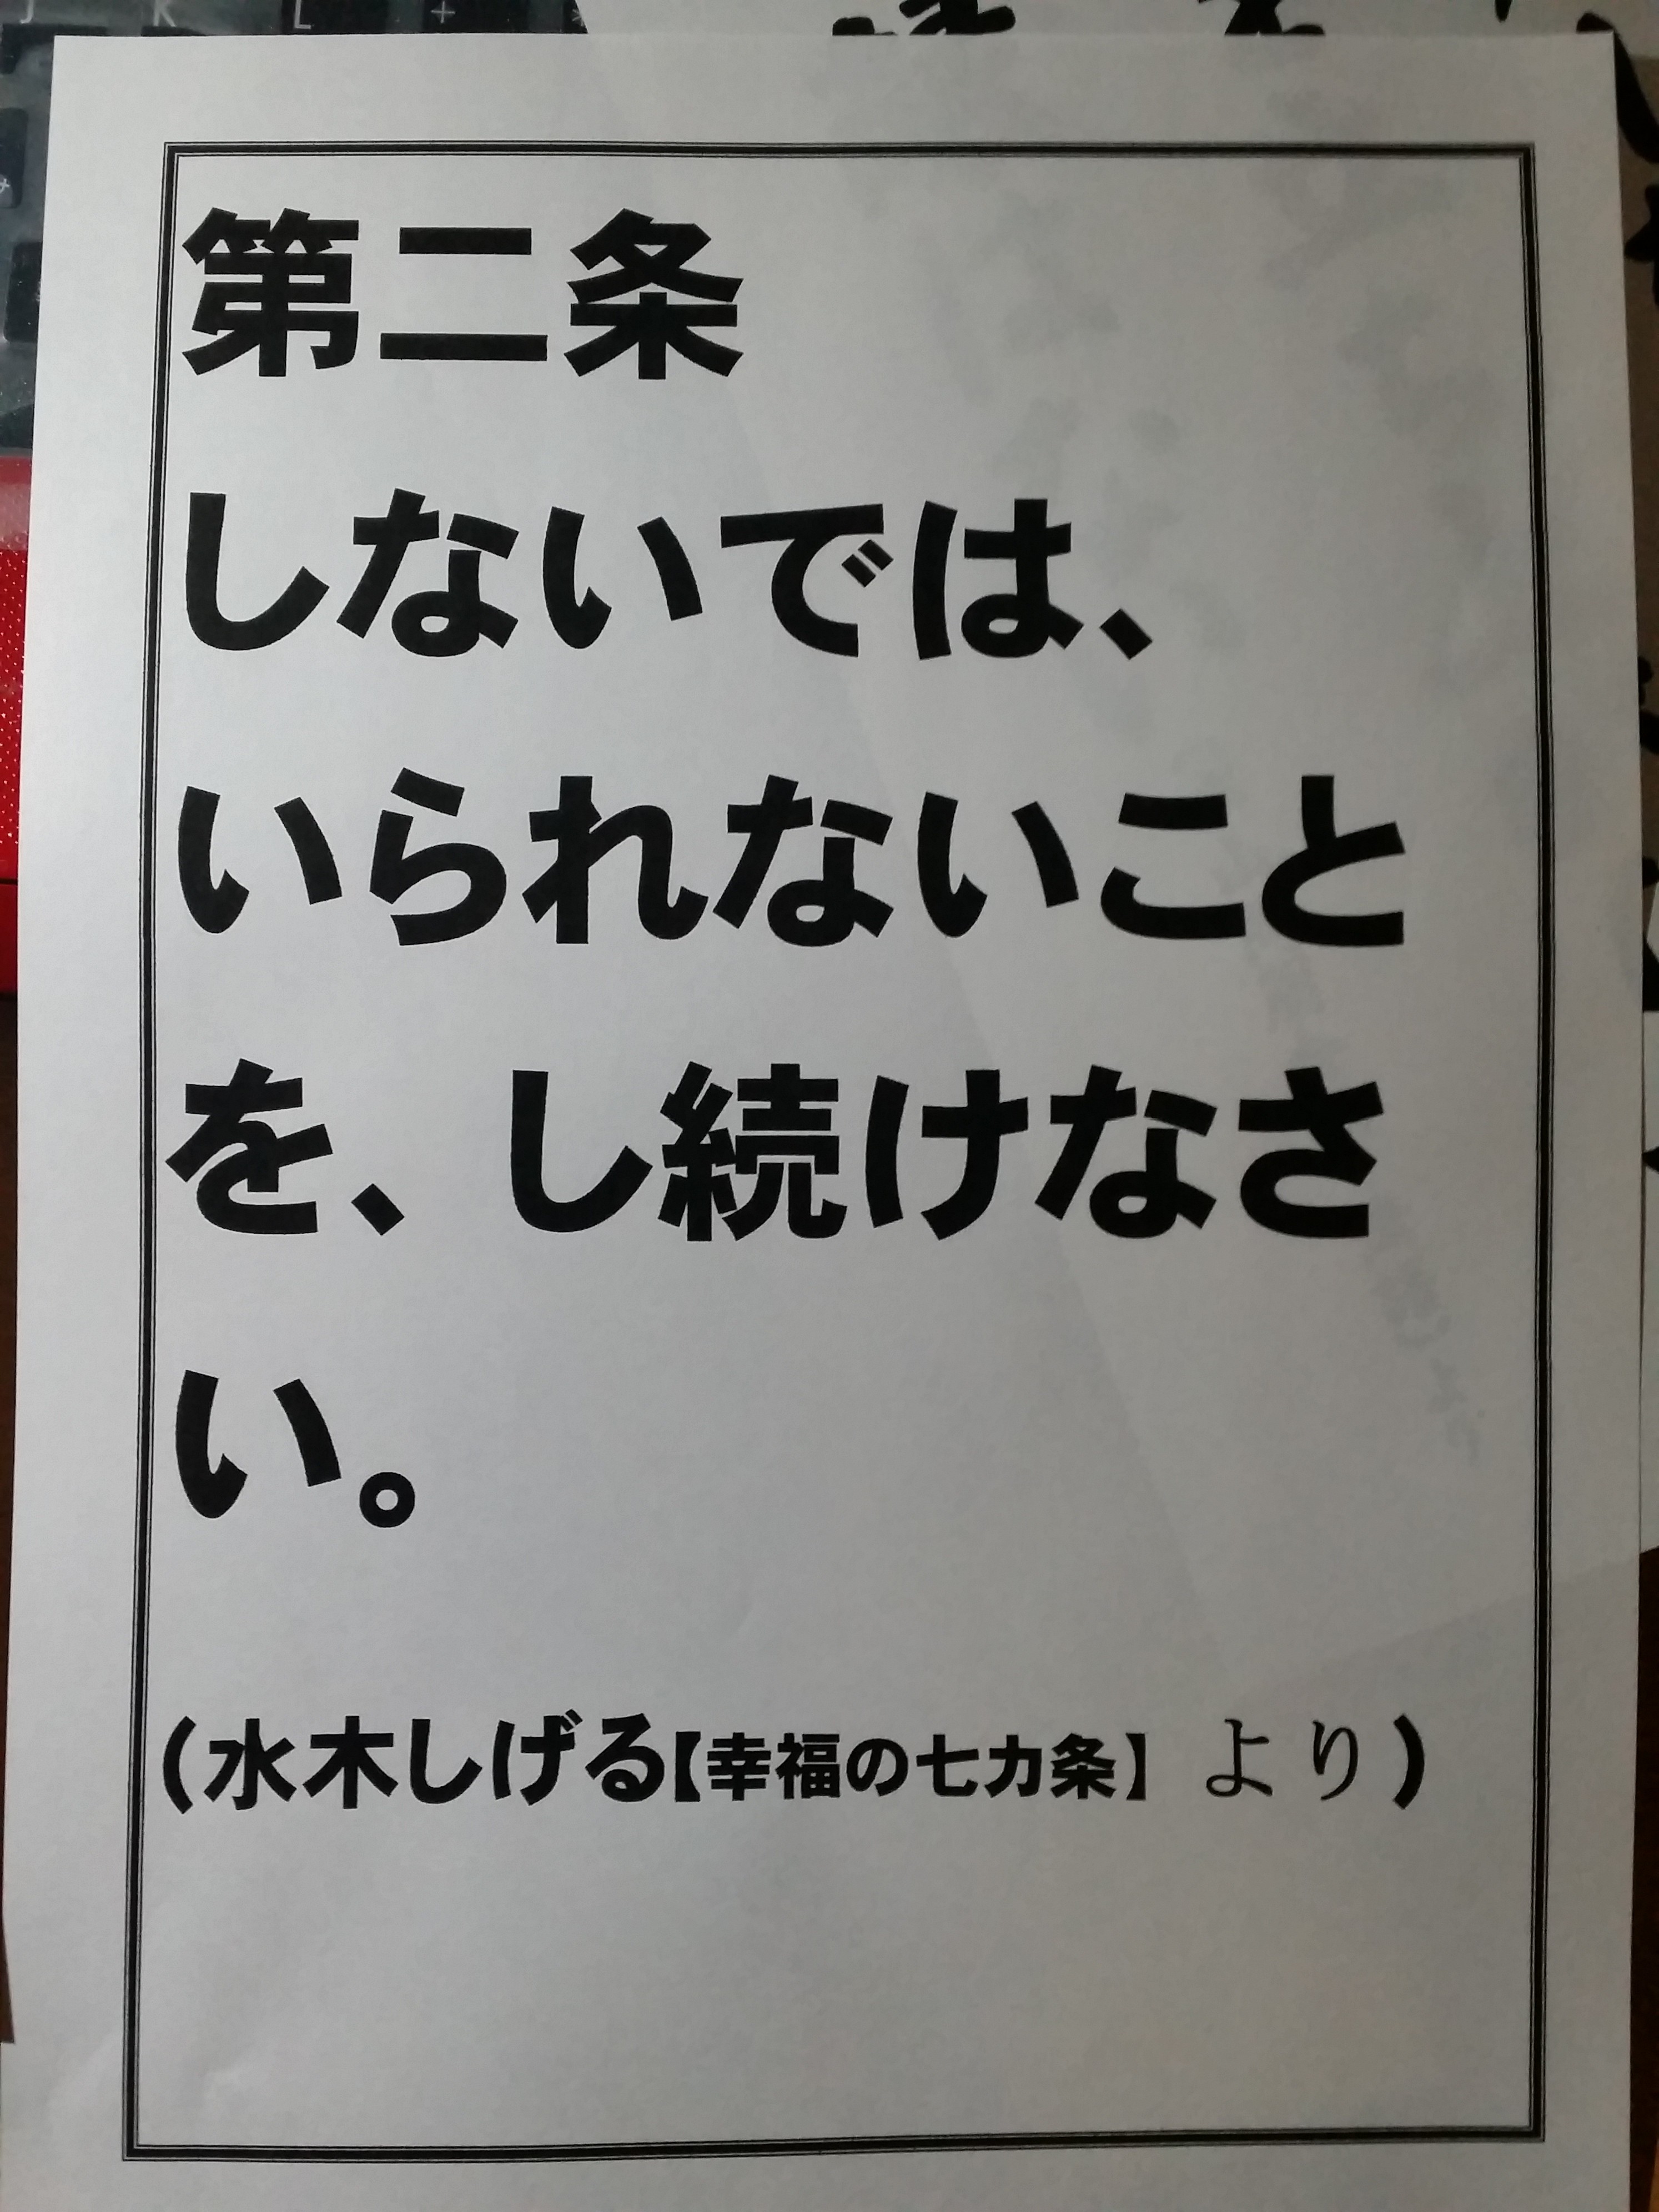 第二条
しないでは、
いられないこと
を、し続けなさ
い。
(水木しげる【幸福の七カ条】より)
J K L +